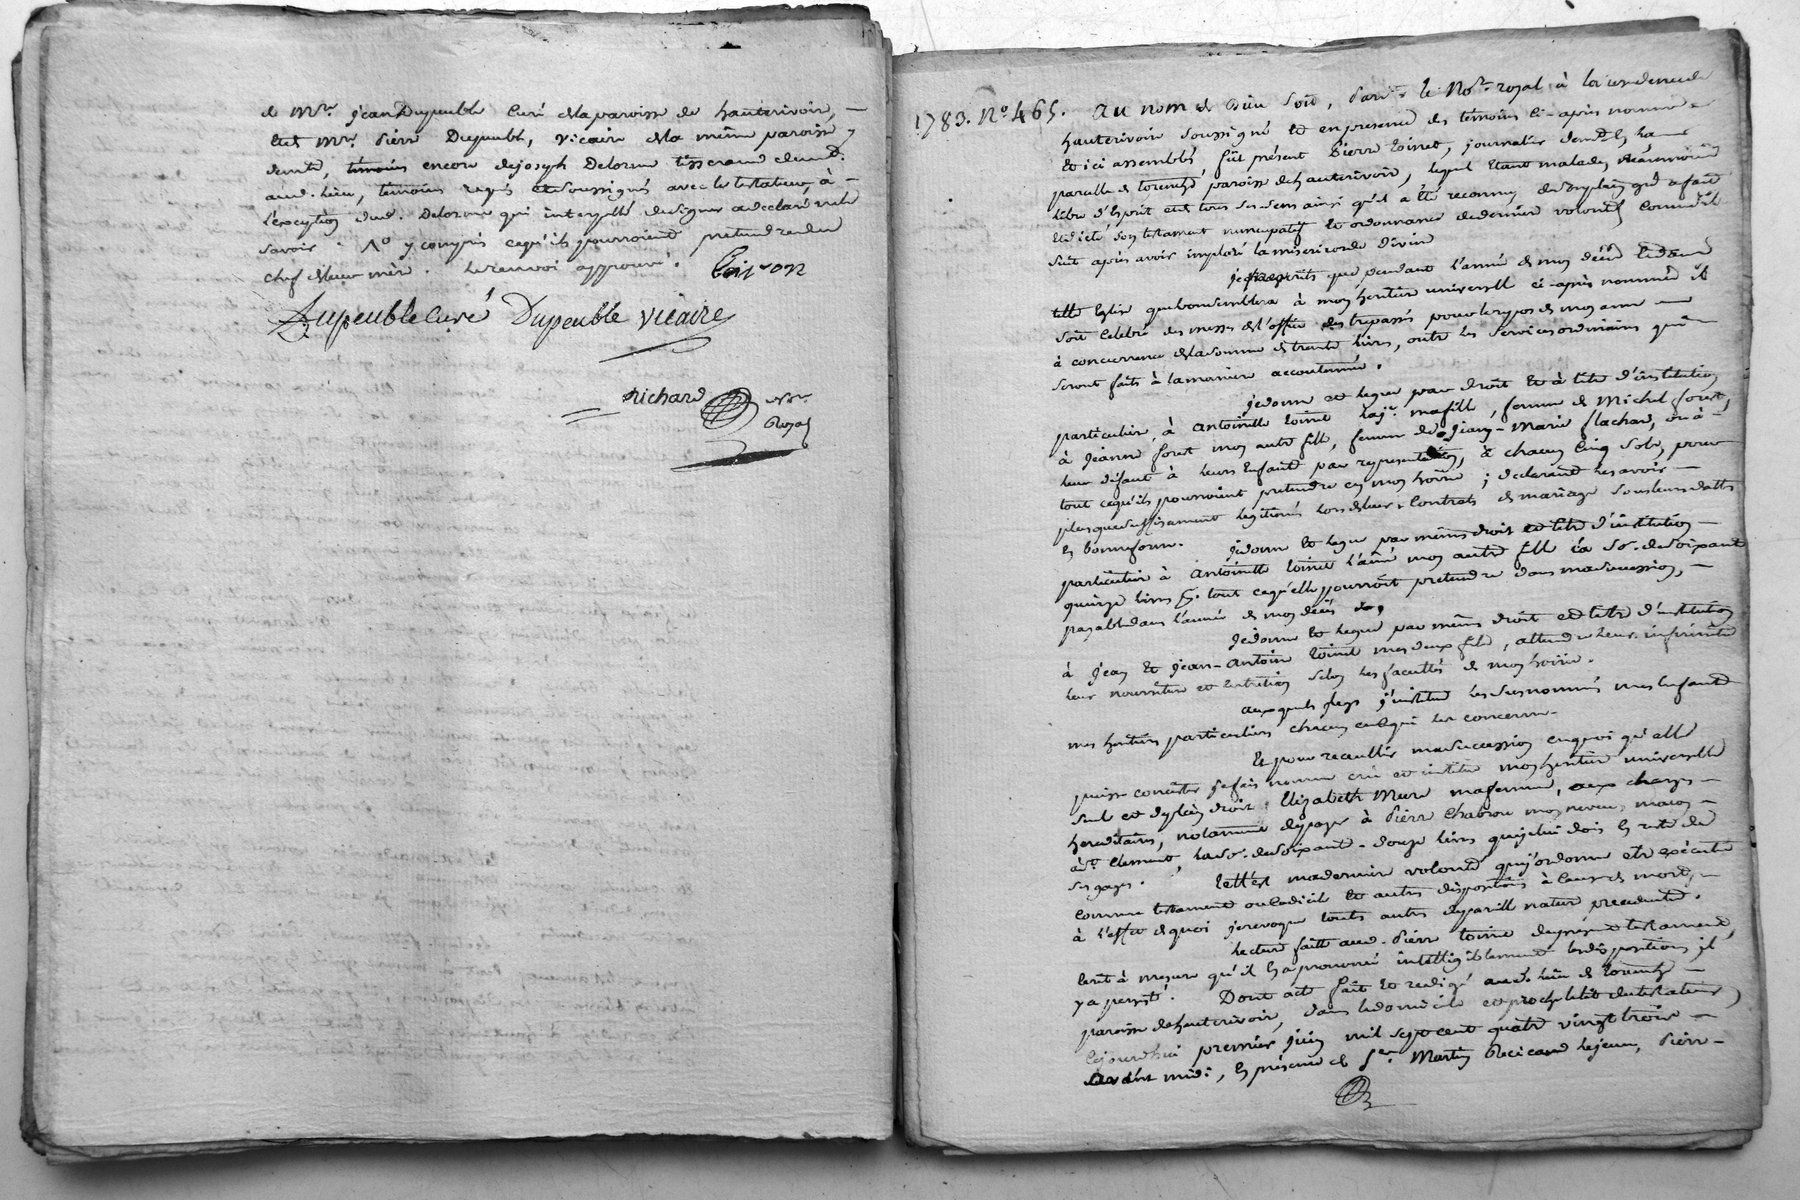 de Mre. jean Dupeuble Curé dela paroisse de hauterivoire, —
et de Mre. pierre Dupeuble, vicaire dela même paroisse y
demt., temoins encore de joseph Delorme tisserand demt.
aud. lieu, temoins requis et soussignés avec le testateur, à —
l'exception dud. Delorme qui interpellé de signer a declaré ne le
savoir. No y compris ce qu'ils pourroient pretendre du
chef de leur mère. le renvoi approuvé.
Dupeuble Curé Dupeuble Vicaire
Richard Nre.
Royal
1783. No. 465. Au nom de Dieu soit, pardt. le Nore. royal à la residence de
hauterivoire soussigné et en presence des témoins ci-après nommés
et ici assemblés fût présent Pierre Toinet, journalier demt. en la
paroisse de hauterivoire, lequel étant malade, neanmoins
libre d'esprit et de tous ses sens ainsi qu'il a été reconnu, de son plein gré a fait
et dicté son testament nuncupatif et ordonnance de derniere volonté comme il
suit après avoir imploré la misericorde Divine
je que pendant l'année de mon décès et dans
telle Eglise que bon semblera à mon heritiere universelle ci-après nommée il
soit celebré des messes de l'office des trepassés pour le repos de mon ame —
à concurrence de la somme de trente livres, outre les services ordinaires qui
seront faits à la maniere accoutumée.
je donne et legue par droit et à titre d'institution
particuliere, à Antoinette Toinet ma fille, femme de Michel foret,
à jeanne foret mon autre fille, femme de jean-Marie flachar, ou à —
leur défaut à leurs enfants par representation, à chacun cinq sols, pour
tout ce qu'ils pourroient pretendre en mon hoirie; declarant les avoir —
plus que suffisament legitimés lors de leurs Contrats de mariage sous leurs dattes
en bonne forme. je donne et legue par mêmes droit et titre d'institution —
particuliere à Antoinette Toinet l'ainé mon autre fille la so. de soixante
quinze livres pr. tout ce qu'elle pourroit pretendre dans ma succession, —
payable dans l'année de mon décès
je donne et legue par mêmes droit et titre d'institution
à jean et jean-Antoine Toinet mes deux fils, attendu leurs infirmités
leur nourriture et entretien selon les facultés de mon hoirie.
auxquels legs j'institue les susnommés mes enfants
mes heritiers particuliers chacun en ce qui les concerne.
Et pour recueillir ma succession en quoi qu'elle
puisse consister je fais nomme crée et institue mon heritiere universelle
seule et de plein droit, Elizabeth Mure ma femme, aux charges —
hereditaires, notamment de payer à Pierre Chabrou mon neveu, maçon —
à St. Clement, la so. de soixante-douze livres que je lui dois en reste de
ses gages. telle est ma derniere volonté que j'ordonne etre exécutée
comme testament ou Codicile et autres dispositions à cause de mort, —
à l'effet de quoi je revoque toutes autres de pareille nature precedentes.
lecture faite aud. Pierre Toinet du présent testament,
écrit à mesure qu'il en a prononcé intelligiblement les dispositions, il
y a persisté. Dont acte fait et redigé aud. lieu de —
paroisse de hauterivoire, dans le domicile et proche le lit du testateur,
Cejourd'hui premier juin mil sept cent quatre vingt trois —
avant midi, en présence de Sr. Martin Recicand le jeune, Pierre —